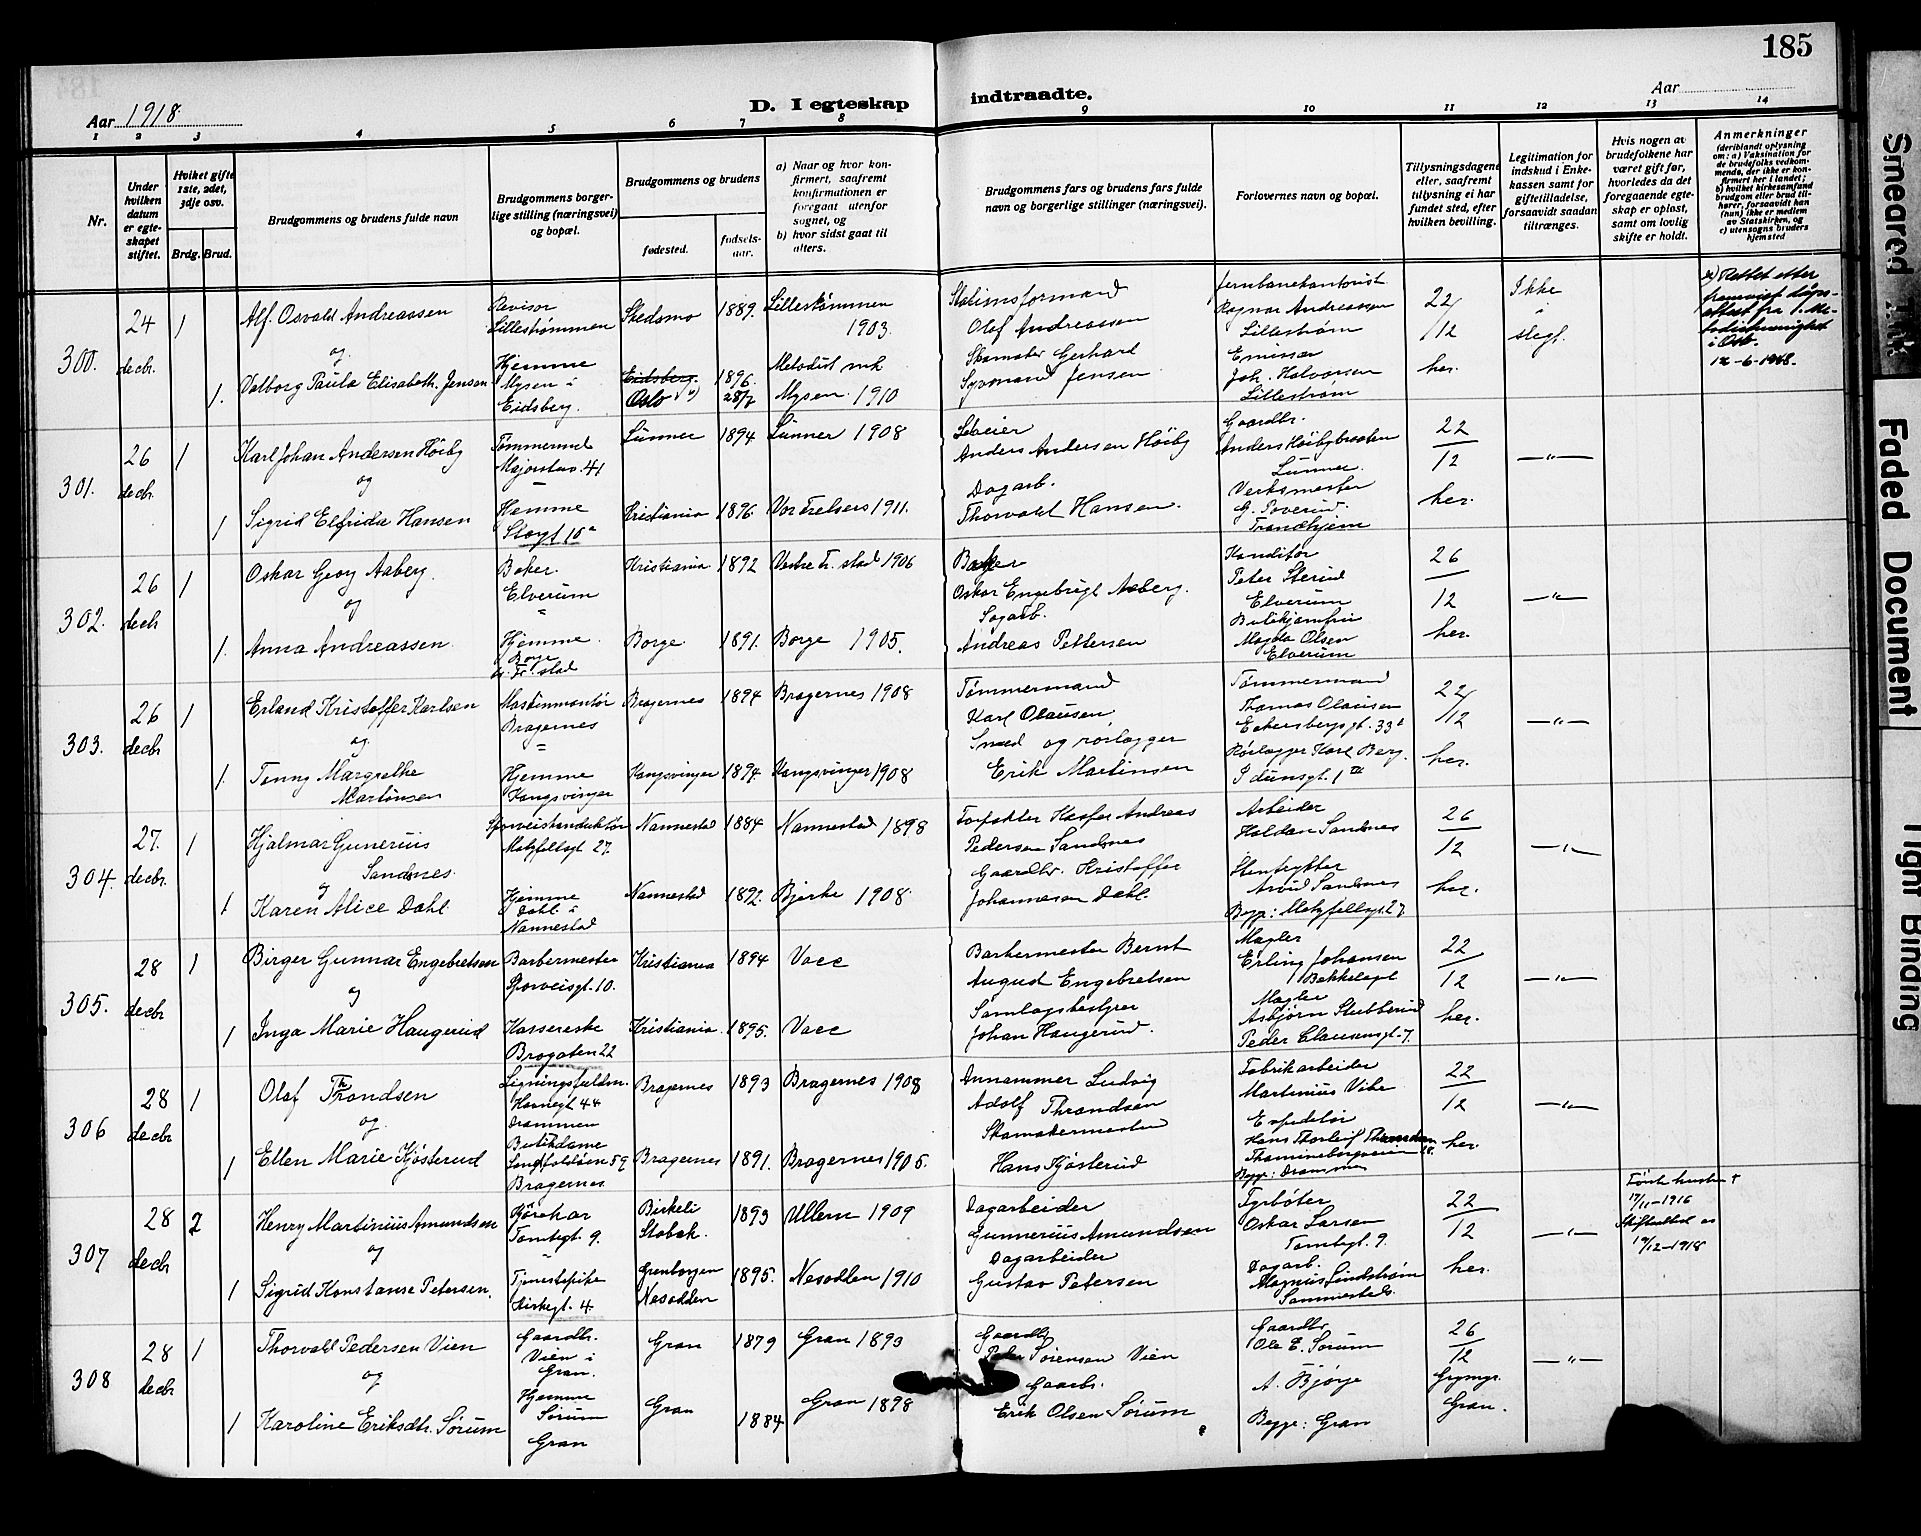 185
Aar 1918.
D. I egteskap indtraadte.
Aar
1 2 3 4 5 6 7 8 9 10 11 12 13 14
Nr.
Under hvilken datum er egteskapet stiftet.
Hviket gifte 1ste, 2det, 3dje osv.
Brdg. Brud.
Brudgommens og brudens fulde navn
Brudgommens borgerlige stilling (næringsvei) og bopæl.
Brudgommens og brudens
fødested.
fødselsaar.
a) Naar og hvor konfirmert, saafremt konfirmationen er foregaat utenfor sognet, og
b) hvor sidst gaat til alters.
Brudgommens fars og brudens fars fulde navn og borgerlige stillinger (næringsvei).
Forlovernes navn og bopæl.
Tillysningsdagene eller, saafremt tillysning ei har fundet sted, efter hvilken bevilling.
Legitimation for indskud i Enkekassen samt for giftetilladelse, forsaavidt saadan tiltrænges.
Hvis nogen av brudefolkene har været gift før, hvorledes da det foregaaende egteskap er opløst, samt om lovlig skifte er holdt.
Anmerkninger
(deriblandt oplysning om: a) Vaksination for de brudefolks vedkommende, der ikke er konfirmert her i landet; b) hvilket kirkesamfund brudgom eller brud tilhører, forsaavidt han (hun) ikke er medlem av Statskirken, og c) utensogns bruders hjemsted
300.
24 decbr.
1
Alf. Osvald Andreassen
Revisor
Lillestrømmen
Skedsmo
1889.
Lillestrømmen
1903.
Stationsformand
Olaf Andreassen
Jernbanekontorist
Ragnar Andreassen
Lillestrøm
22/12
Ikke
slegt.
og
1.
Valborg Paula Elisabeth Jensen
Hjemme
Mysen i
Eidsberg.
Eidsberg.
Oslo
1896.
28/7
Metodist mk
Mysen. 1910
Skomaker Gerhard
Jensen
Emissær
Joh. Halvorsen
Lillestrøm
her.
Rettet etter
fremvist dåps-
attest fra 1. Me-
todistmenighet
i Oslo.
301.
26 decbr.
1
Karl Johan Andersen Høiby
Tømmermand
Majorstuv. 41
Lunner
1894
Lunner 1908
Leieier
Anders Andersen Høiby
Gaardbr.
Anders Høibybraaten
Lunner.
22
12
—"—
og
1
Sigrid Elfrida Hansen
Hjemme
Storgt 10a
Kristiania
1896.
Vor Frelsers 1911.
Dagarb.
Thorvald Hansen.
Verksmester
G. Soverud.
Trondhjem
her.
302.
26 decbr
1
Oskar Georg Aaberg.
Baker.
Elverum
Kristiania
1892
Vestre Fr. stad 1906
Baker
Oskar Engebrigt Aaberg.
Konditor
Peter Sterud
Elverum
26
12
—"—
og
1.
Anna Andreassen.
Hjemme.
Borge
Fr. stad
Borge
1891.
Borge 1905.
Sagarb.
Andreas Pettersen
Butikjomfru
Magda Olsen
Elverum
her.
303.
26 decbr
1
Erland Kristoffer Karlsen
Maskinmontør
Bragernes
Bragernes
1894
Bragernes 1908
Tømmermand
Karl Olausen
Tømmermand
Thomas Olausen
Eckersbergs gt. 33b
22/12
—"—
og
1
Jenny Margrethe
Martinsen
Hjemme
Kongsvinger
Kongsvinger
1894.
Kongsvinger 1908
Smed og rørlægger
Erik Martinsen
Rørlægger Karl Berg.
her.
304.
27. decbr.
1
Hjalmar Gunerius
Sandsnes.
Sporveiskonduktør
Matzfeldtsgt. 27.
Nannestad
1884
Nannestad 1898
Forpakter Kasper Andreas
Pedersen Sandsnes
Arbeider
Haldan Sandsnes
26
12
—"—
og
1
Karen Alice Dahl.
Hjemme
Dahl i
Nannestad
Nannestad
1892.
Bjerke 1908.
Gaardbr. Kristoffer
Johannesen Dahl.
Stentrykker
Arvid Sandsnes
Begge: Matzfeldtsgt. 27
her.
305.
28 decbr
1
Birger Gunnar Engebretsen
Barbermester
Sporveisgt. 10.
Kristiania
1894
Vace
Barbermester Bernt
August Engebretsen
Mægler
Erling Johansen
Bekkelagt
22
12
—"—
og
1
Inga Marie Haugerud
Kassererske
Brogaten 22
Kristiania.
1895.
Vace
Samlagsbestyrer
Johan Haugerud.
Mægler
Asbjørn Stubberud
Peder Clausensgt. 7.
her.
306
28 decbr
1
Olaf Throndsen
Ligningsfuldm.
Havnegt 44
Drammen
Bragernes
1893
Bragernes 1908
Annammer Ludvig
Adolf Throndsen
Fabrikarbeider
Martinius Vibe
22
12
—"—
og
1
Ellen Marie Kjøsterud
Butikdame
Bragernes.
Bragernes
1891.
Bragernes 1905.
Skomakermester
Hans Kjøsterud
Expeditør
Hans Thorleif Throndsen
Begge: Drammen
her.
307
28 decbr
2
Henry Martinius Amundsen
Kjørekar
Tomtegt. 9.
Birkeli
Stabæk.
1893
Ullern 1909
Dagarbeider
Gunnerius Amundsen
Fyrbøter
Oskar Larsen
Tomtegt. 9.
22
12
—"—
Første hustru †
17/11-1916
Skifteattest av
19/12-1918
og
1
Sigrid Konstanse Petersen.
Tjenestepike
Kirkegt. 4.
Nesodden
1895.
Nesodden 1910
Dagarbeider
Gustav Petersen
Dagarb.
Magnus Lindstrøm
her.
308
28 decbr
1
Thorvald Pedersen Vien
Gaardbr.
Vien i
Gran.
Gran
1879
Gran 1893
Gaardbr
Peder Sørensen Vien
Gaardbr
Ole E. Sørum
26
12
—"—
og
1
Karoline Eriksdtr. Sørum
Hjemme
Sørum
Gran
Gran
1884
Gran 1898
Gaarbr.
Erik Olsen Sørum
A. Bjørge
Begge: Gran
Gran.
Smeared Ink
Faded Document
Tight Binding